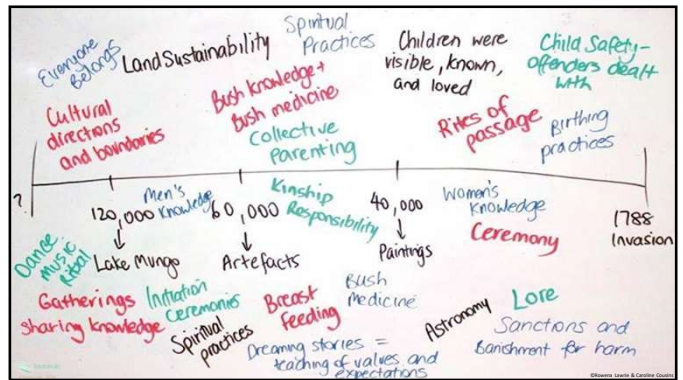 Everyone
Belongs
Land Sustainability
Spiritual
Practices
Children were
visible, known,
and loved
Child Safety-
offenders dealt
with
Cultural
directions
and boundaries
Bush knowledge +
Bush medicine
Collective
Parenting
Rites of
passage
Birthing
practices
?
120,000
Men's
Knowledge
60,000
Kinship
Responsibility
40,000
Women's
Knowledge
Ceremony
1788
Invasion
Dance
Music
Ritual
Lake Mungo
Artefacts
Paintings
Gatherings
sharing knowledge
Initiation
Ceremonies
Spiritual
practices
Breast
feeding
Bush
Medicine
Astronomy
Lore
Sanctions and
Banishment for harm
Dreaming stories =
teaching of values and
expectations
©Rowena Lawrie & Caroline Cousins